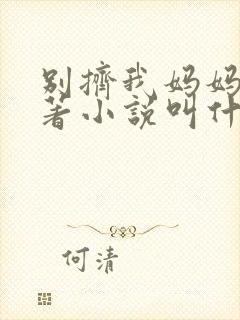 别擠我妈妈
著小説叫什
何清